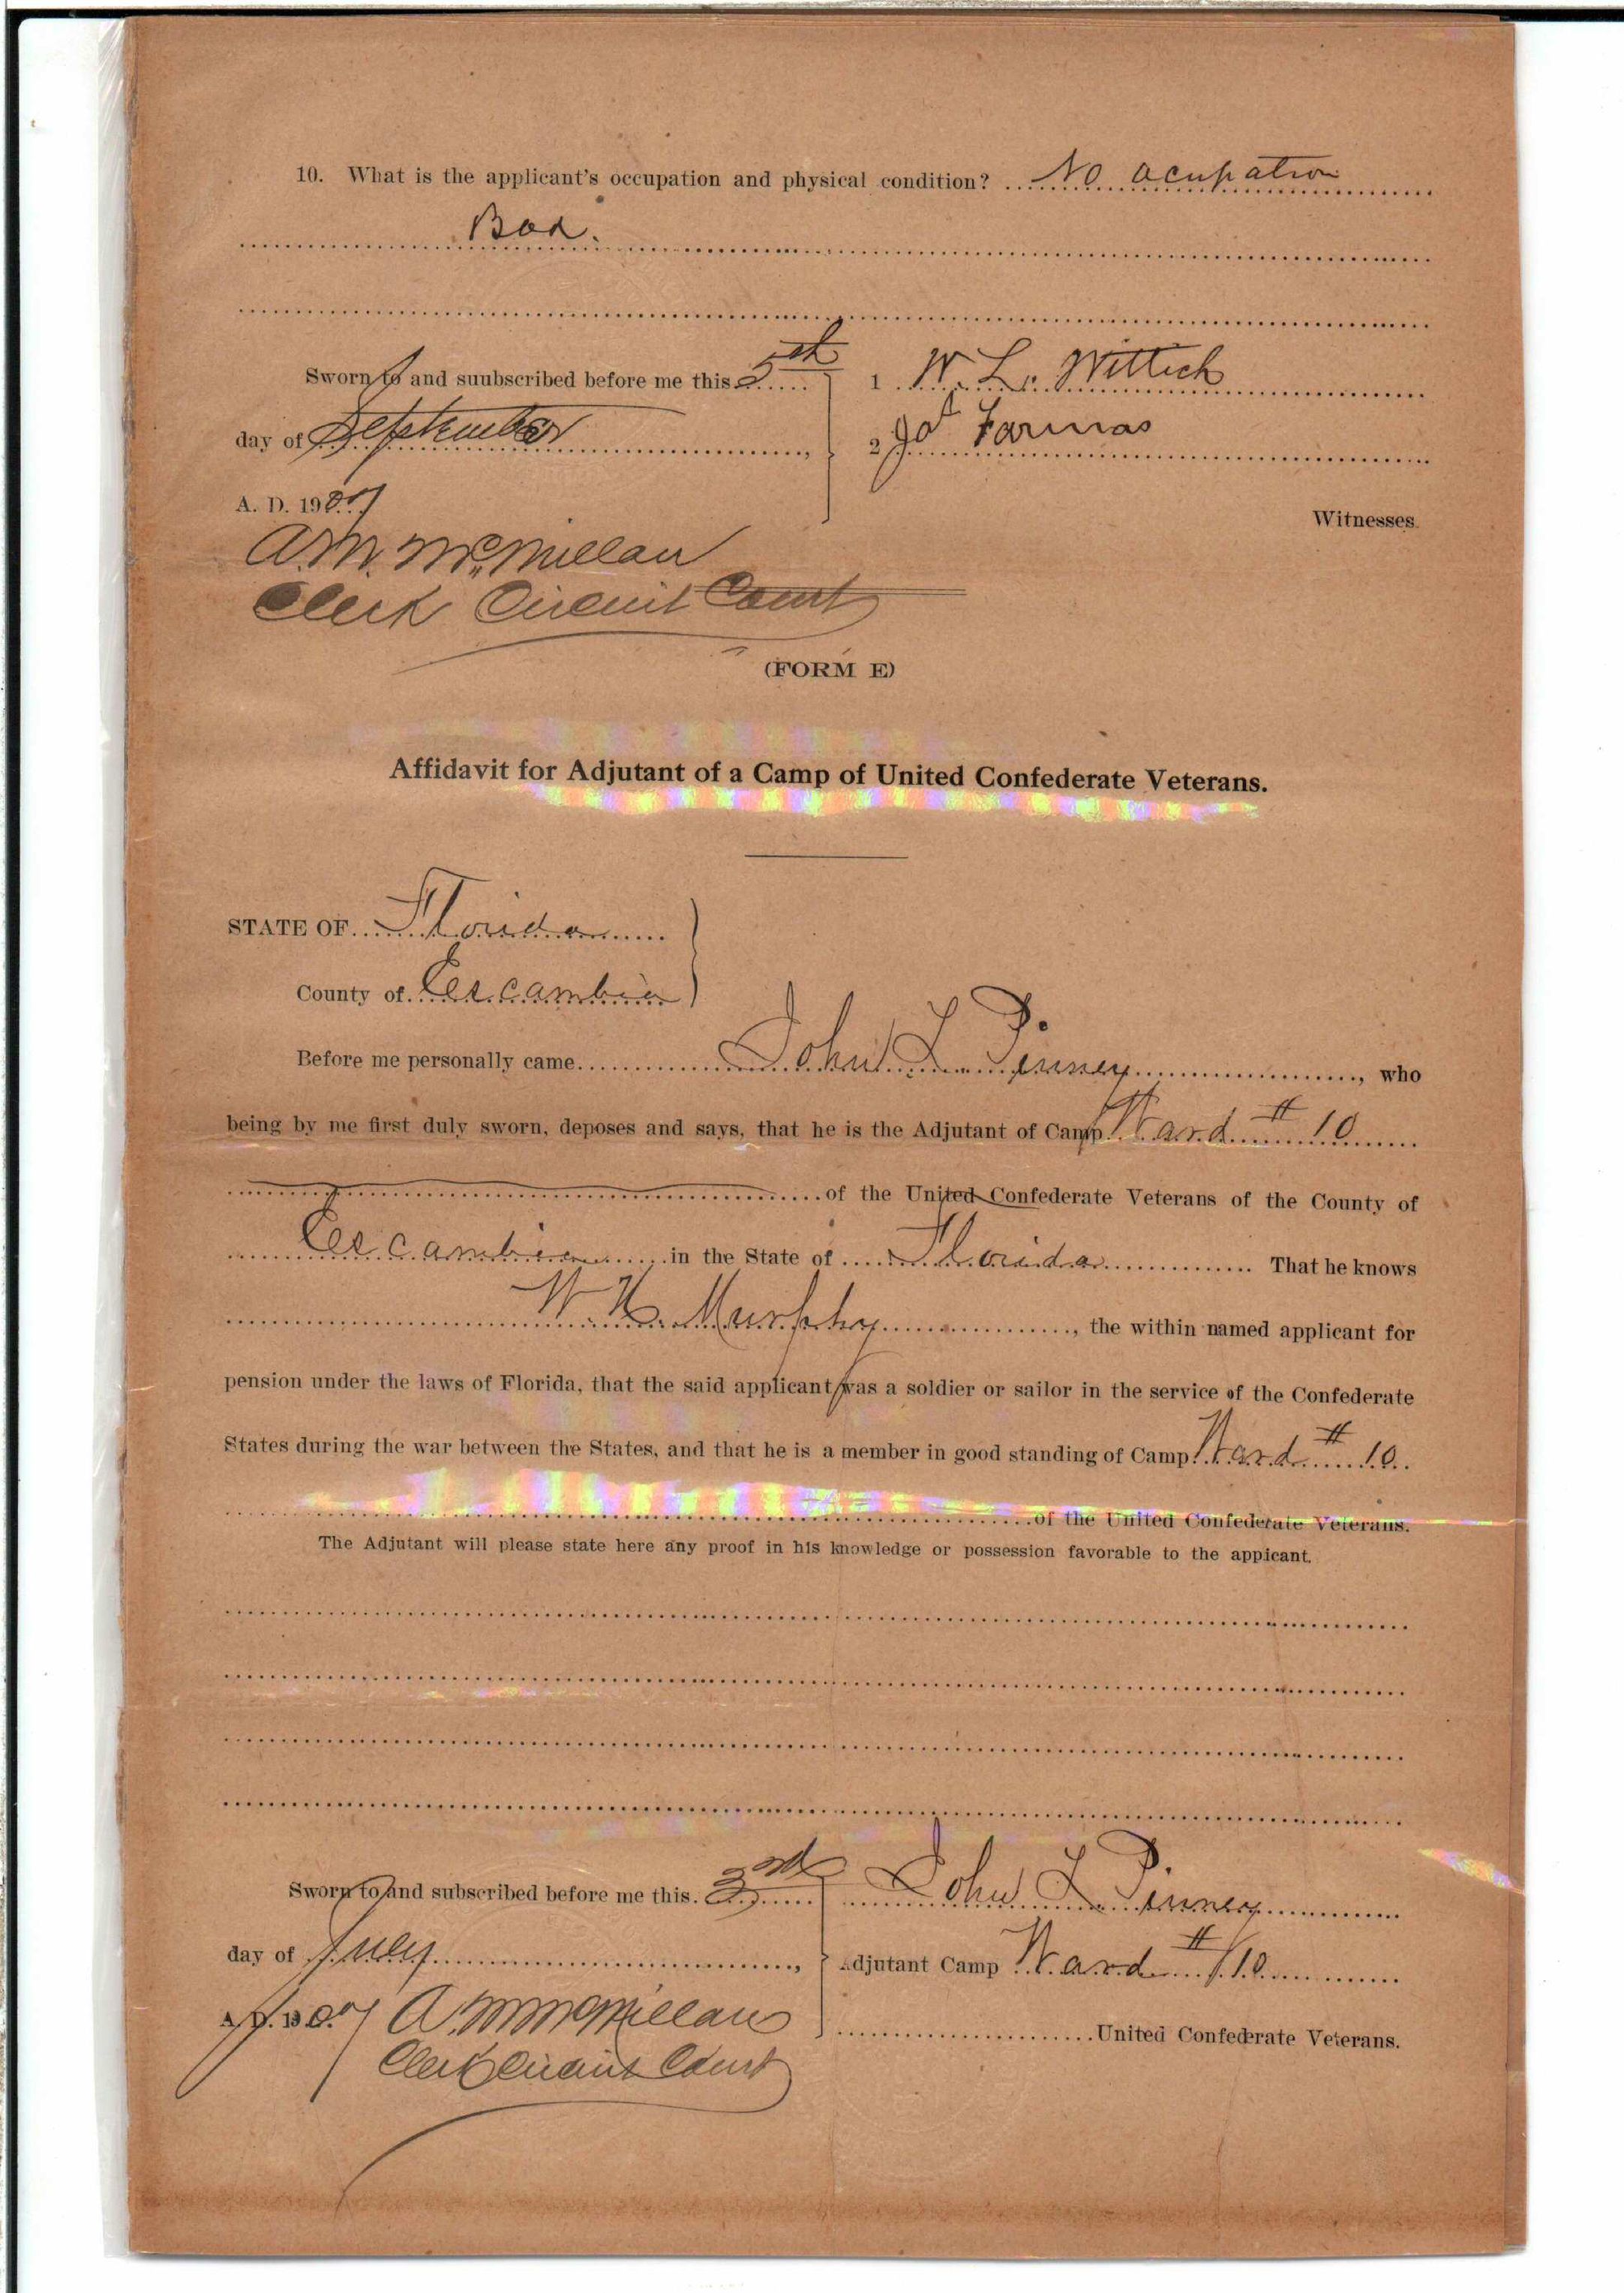 10. What is the applicant's occupation and physical condition? No acupation
Bad.
Sworn to and suubscribed before me this 5th
day of September
A. D. 1907
1 W. L. Wittich
2 Farinas
Witnesses.
A. M. McMillan
Clerk Circuit Court
(FORM E)
Affidavit for Adjutant of a Camp of United Confederate Veterans.
STATE OF Florida
County of Escambia
Before me personally came John L. Pinney, who
being by me first duly sworn, deposes and says, that he is the Adjutant of Camp Ward # 10
of the United Confederate Veterans of the County of
Escambia in the State of Florida That he knows
W. H. Murphy, the within named applicant for
pension under the laws of Florida, that the said applicant was a soldier or sailor in the service of the Confederate
States during the war between the States, and that he is a member in good standing of Camp Ward # 10
of the United Confederate Veterans.
The Adjutant will please state here any proof in his knowledge or possession favorable to the appicant.
Sworn to and subscribed before me this 3rd
day of July
A. D. 1907
A. M. McMillan
Clerk Circuit Court
John L. Pinney
Adjutant Camp Ward # 10
United Confederate Veterans.